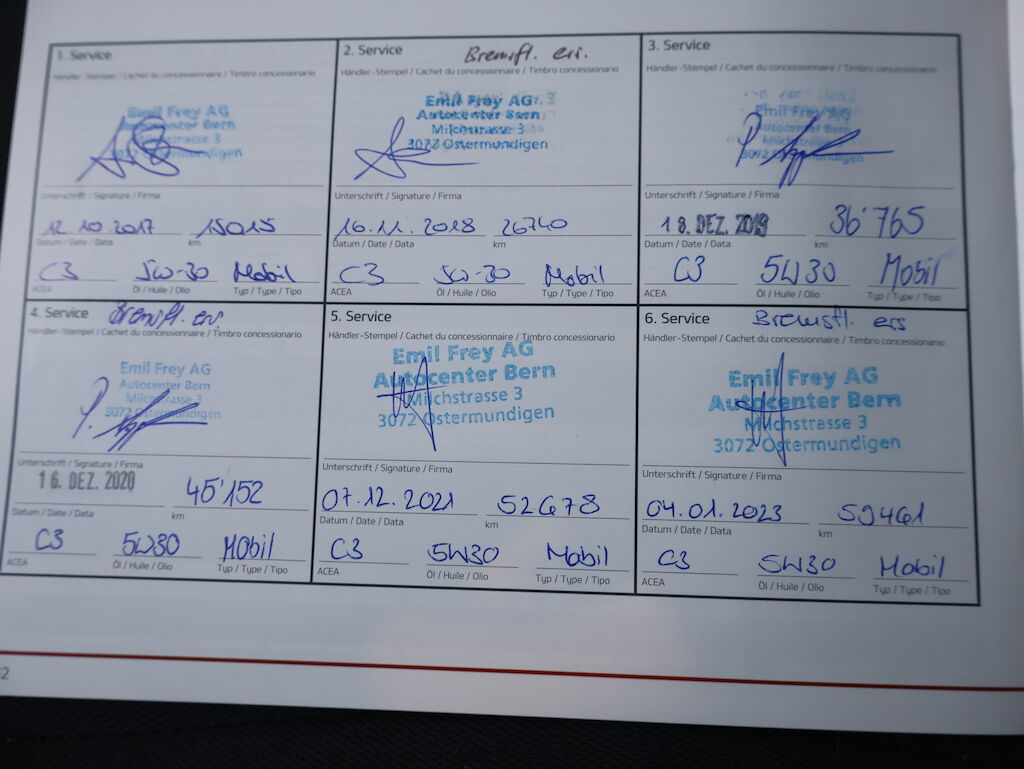 1. Service
Händler-Stempel / Cachet du concessionnaire / Timbro concessionario
Emil Frey AG
Autocenter Bern
Milchstrasse 3
3072 Ostermundigen
Unterschrift / Signature / Firma
12.10.2017 15015
Datum / Date / Data km
C3 5W-30 Mobil
ACEA Öl / Huile / Olio Typ / Type / Tipo
2. Service Bremsfl. ers.
Händler-Stempel / Cachet du concessionnaire / Timbro concessionario
Emil Frey AG
Autocenter Bern
Milchstrasse 3
3072 Ostermundigen
Unterschrift / Signature / Firma
16.11.2018 26740
Datum / Date / Data km
C3 5W-30 Mobil
ACEA Öl / Huile / Olio Typ / Type / Tipo
3. Service
Händler-Stempel / Cachet du concessionnaire / Timbro concessionario
Emil Frey AG
Autocenter Bern
Milchstrasse 3
3072 Ostermundigen
Unterschrift / Signature / Firma
18. DEZ. 2019 36'765
Datum / Date / Data km
C3 5W30 Mobil
ACEA Öl / Huile / Olio Typ / Type / Tipo
4. Service Bremsfl. ers.
Händler-Stempel / Cachet du concessionnaire / Timbro concessionario
Emil Frey AG
Autocenter Bern
Milchstrasse 3
3072 Ostermundigen
Unterschrift / Signature / Firma
16. DEZ. 2020 45'152
Datum / Date / Data km
C3 5W30 Mobil
ACEA Öl / Huile / Olio Typ / Type / Tipo
5. Service
Händler-Stempel / Cachet du concessionnaire / Timbro concessionario
Emil Frey AG
Autocenter Bern
Milchstrasse 3
3072 Ostermundigen
Unterschrift / Signature / Firma
07.12.2021 52678
Datum / Date / Data km
C3 5W30 Mobil
ACEA Öl / Huile / Olio Typ / Type / Tipo
6. Service Bremsfl. ers
Händler-Stempel / Cachet du concessionnaire / Timbro concessionario
Emil Frey AG
Autocenter Bern
Milchstrasse 3
3072 Ostermundigen
Unterschrift / Signature / Firma
04.01.2023 59461
Datum / Date / Data km
C3 5W30 Mobil
ACEA Öl / Huile / Olio Typ / Type / Tipo